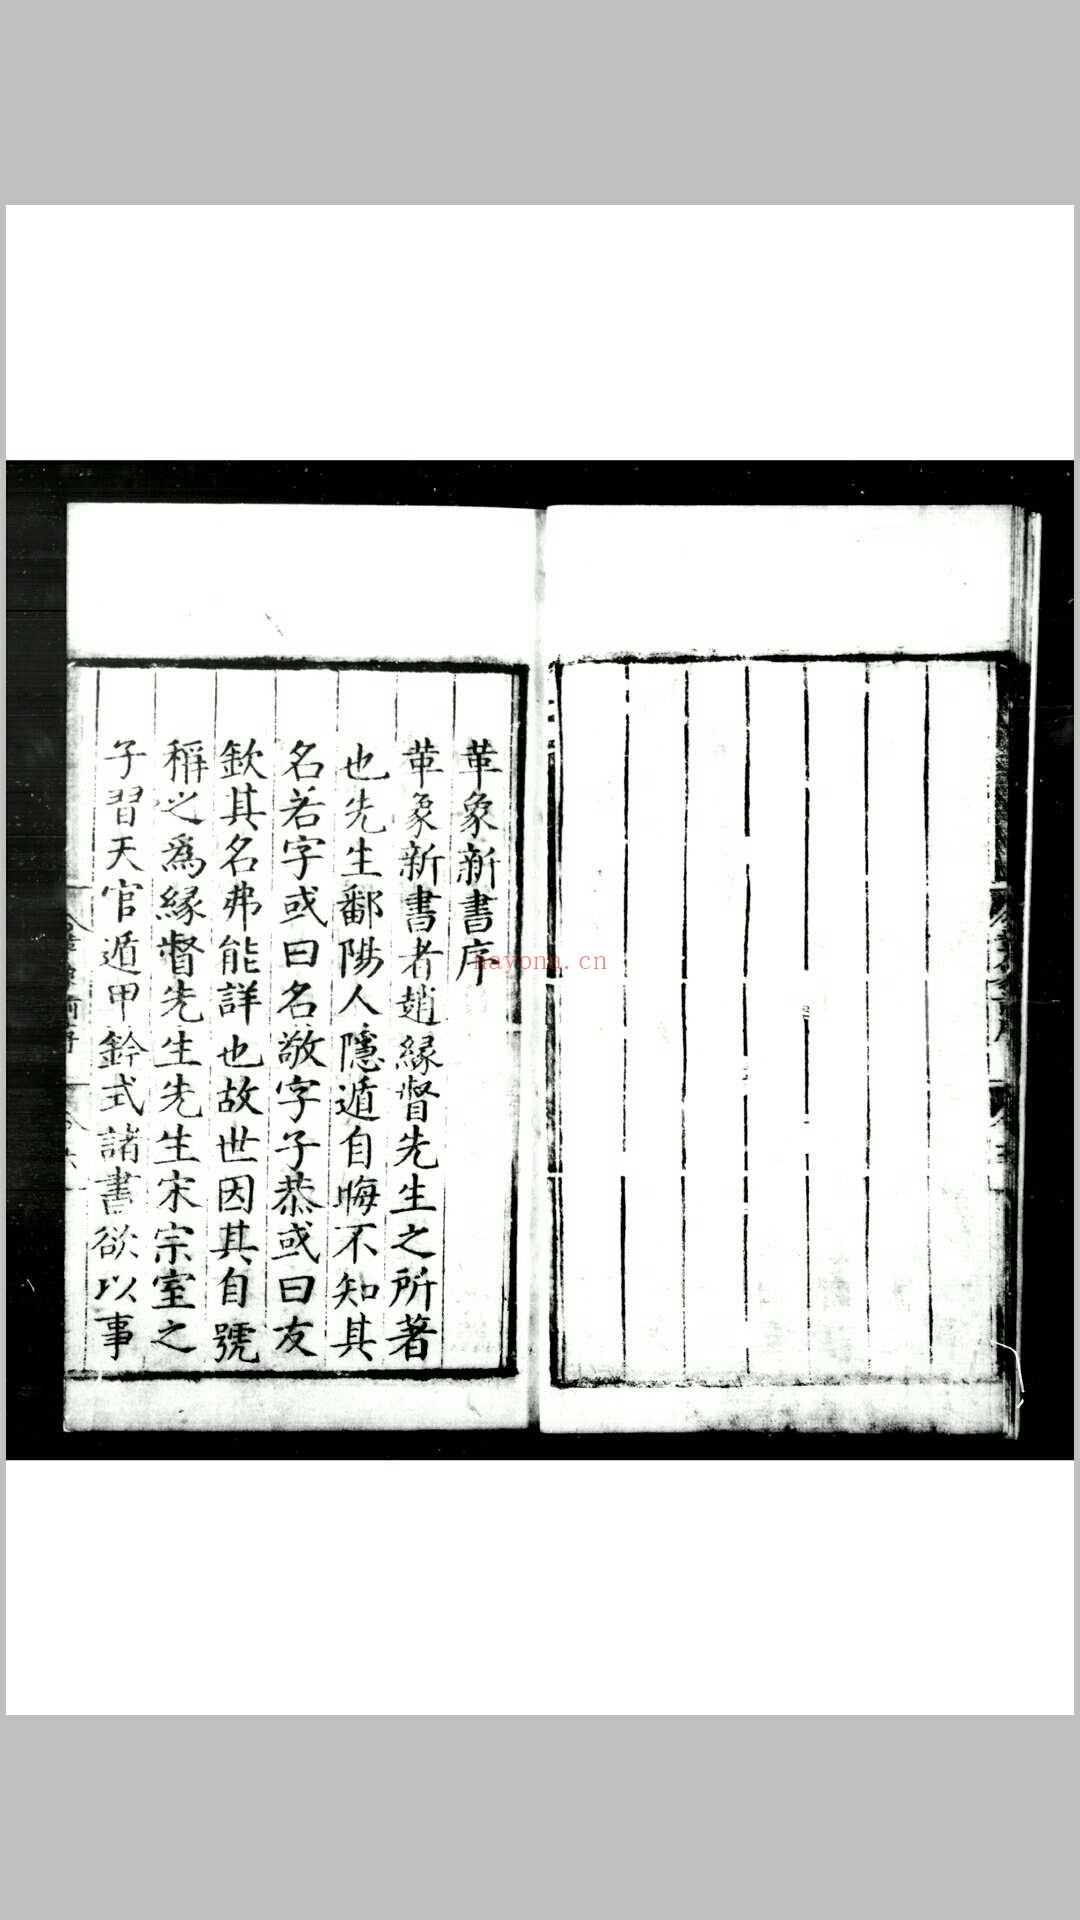 革象新書序
革象新書者趙緣督先生之所著
也先生鄱陽人隱遁自晦不知其
名若字或曰名敬字子恭或曰友
欽其名弗能詳也故世因其自號
稱之爲緣督先生先生宋宗室之
子習天官遁甲鈐式諸書欲以事
nayona.cn